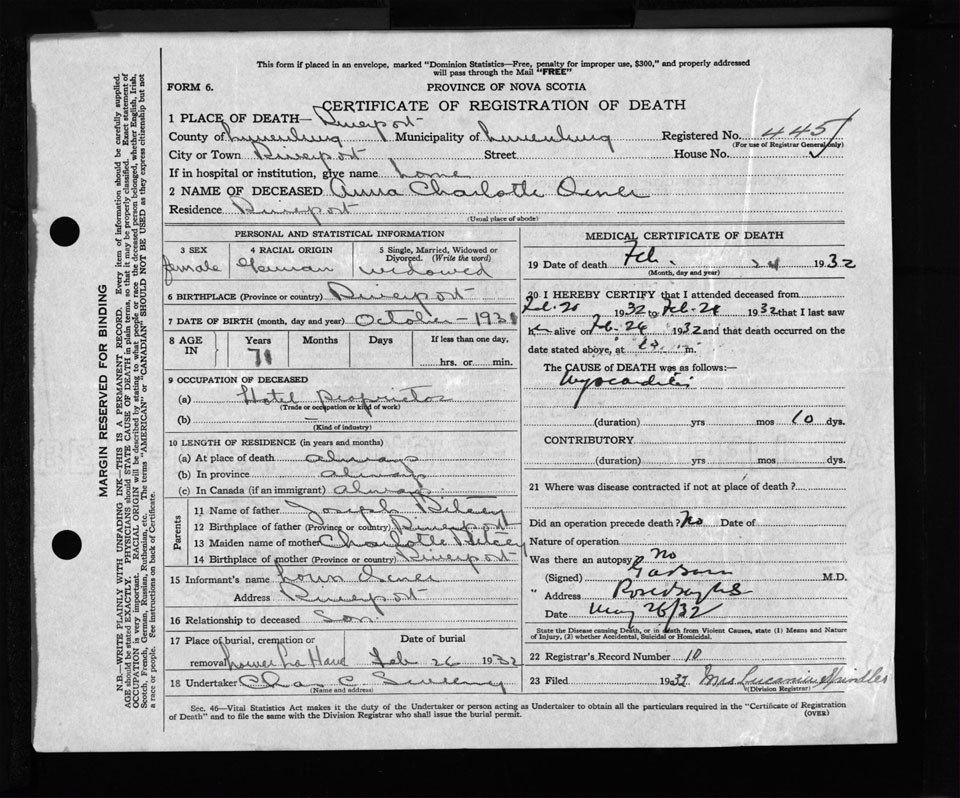 This form if placed in an envelope, marked "Dominion Statistics—Free, penalty for improper use, $300," and properly addressed
will pass through the Mail "FREE"
FORM 6.
PROVINCE OF NOVA SCOTIA
CERTIFICATE OF REGISTRATION OF DEATH
1 PLACE OF DEATH— Riverport
County of Lunenburg Municipality of Lunenburg Registered No. 445
(For use of Registrar General only)
City or Town Riverport Street House No.
If in hospital or institution, give name home
2 NAME OF DECEASED Anna Charlotte Oxner
Residence Riverport
(Usual place of abode)
PERSONAL AND STATISTICAL INFORMATION
3 SEX 4 RACIAL ORIGIN 5 Single, Married, Widowed or
Divorced. (Write the word)
female German widowed
6 BIRTHPLACE (Province or country) Riverport
7 DATE OF BIRTH (month, day and year) October - 1931
8 AGE IN Years Months Days If less than one day,
71 hrs. or min.
9 OCCUPATION OF DECEASED
(a) Hotel Proprietor
(Trade or occupation or kind of work)
(b)
(Kind of industry)
10 LENGTH OF RESIDENCE (in years and months)
(a) At place of death always
(b) In province always
(c) In Canada (if an immigrant) always
Parents
11 Name of father Joseph Ritcey
12 Birthplace of father (Province or country) Riverport
13 Maiden name of mother Charlotte Ritcey
14 Birthplace of mother (Province or country) Riverport
15 Informant's name Oxner
Address Riverport
16 Relationship to deceased Son
17 Place of burial, cremation or Date of burial
removal Lower La Have Feb 26 1932
18 Undertaker Chas C. Sweeny
(Name and address)
MEDICAL CERTIFICATE OF DEATH
19 Date of death Feb. 24 1932
(Month, day and year)
20 I HEREBY CERTIFY that I attended deceased from
Feb. 20 1932 to Feb. 24 1932 that I last saw
h alive on Feb. 24 1932 and that death occurred on
the date stated above, at m.
The CAUSE of DEATH was as follows:—
Myocarditis
(duration) yrs mos 10 dys.
CONTRIBUTORY
(duration) yrs. mos. dys.
21 Where was disease contracted if not at place of death?
Did an operation precede death? No Date of
Nature of operation
Was there an autopsy No
(Signed) M.D.
" Address Rose Bay N.S.
Date May 26/32
State the Disease causing Death, or in death from Violent Causes, state (1) Means and Nature
of Injury, (2) whether Accidental, Suicidal or Homicidal.
22 Registrar's Record Number 10
23 Filed 1932 Mrs.
(Division Registrar)
Sec. 46—Vital Statistics Act makes it the duty of the Undertaker or person acting as Undertaker to obtain all the particulars required in the "Certificate of Registration
of Death" and to file the same with the Division Registrar who shall issue the burial permit.
(OVER)
MARGIN RESERVED FOR BINDING
N.B.—WRITE PLAINLY WITH UNFADING INK—THIS IS A PERMANENT RECORD. Every item of information should be carefully supplied.
AGE should be stated EXACTLY. PHYSICIANS should STATE CAUSE OF DEATH in plain terms, so that it may be properly classified. Exact statement of
OCCUPATION is very important. RACIAL ORIGIN will be described by stating to what people or race the deceased person belonged, whether English, Irish,
Scotch, French, German, Russian, Ruthenian, etc. The terms "AMERICAN" or "CANADIAN" SHOULD NOT BE USED as they express citizenship but not
a race or people. See instructions on back of Certificate.